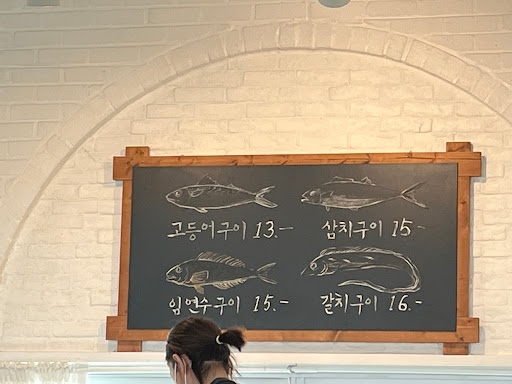 고등어구이 13.-
삼치구이 15-
임연수구이 15.-
갈치구이 16.-